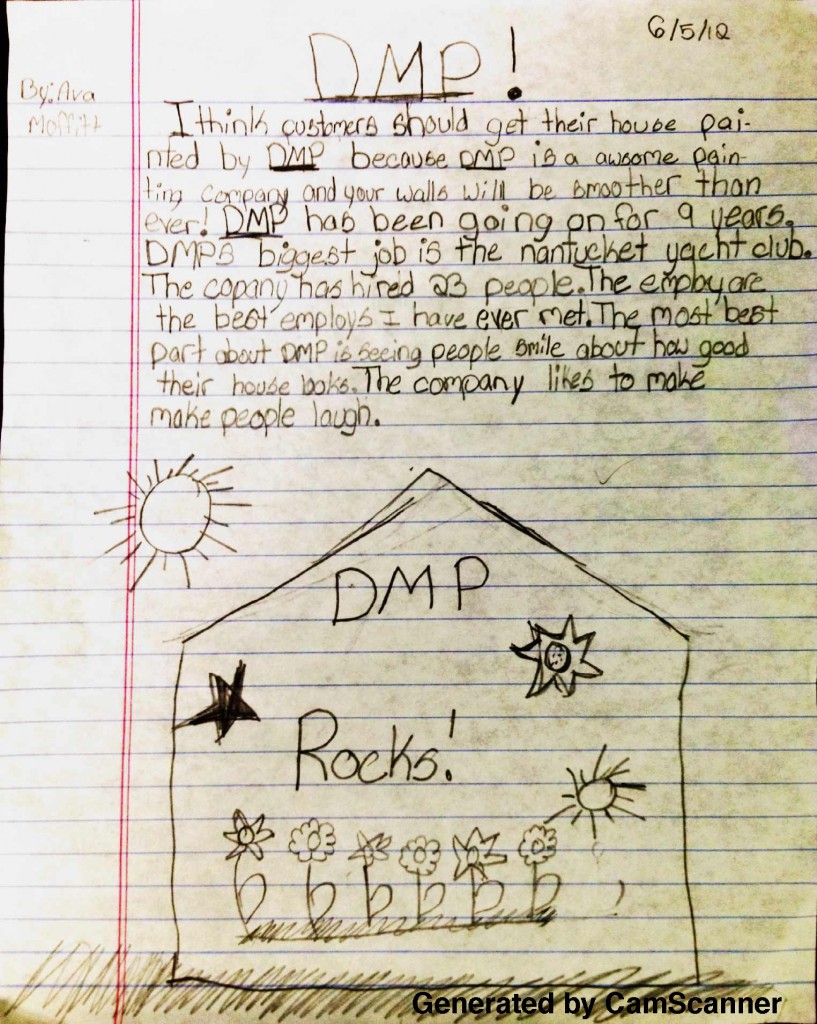 6/5/12
DMP!
By: Ava
Moffitt
I think customers should get their house pai-
nted by DMP because DMP is a awsome pain-
ting company and your walls will be smoother than
ever! DMP has been going on for 9 years.
DMPs biggest job is the nantucket yacht club.
The copany has hired 23 people. The employ are
the best employs I have ever met. The most best
part about DMP is seeing people smile about how good
their house looks. The company likes to make
make people laugh.
DMP
Rocks!
Generated by CamScanner